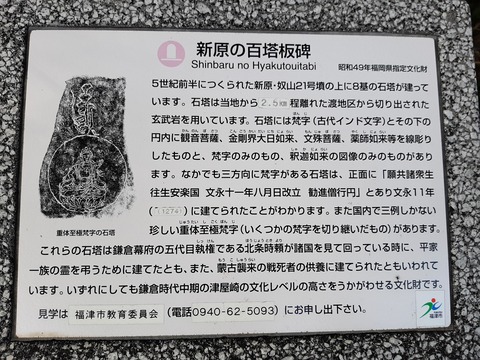 新原の百塔板碑
Shinbaru no Hyakutouitabi
昭和49年福岡県指定文化財
5世紀前半につくられた新原・奴山21号墳の上に8基の石塔が建って
います。石塔は当地から2.5km程離れた渡地区から切り出された
玄武岩を用いています。石塔には梵字(古代インド文字)とその下の
円内に観音菩薩、金剛界大日如来、文殊菩薩、薬師如来等を線彫り
したものと、梵字のみのもの、釈迦如来の図像のみのものがあり
ます。なかでも三方向に梵字がある石塔は、正面に「願共諸衆生
往生安楽国 文永十一年八月日改立 勧進僧行円」とあり文永11年
(1274)に建てられたことがわかります。また国内で三例しかない
珍しい重体至極梵字(いくつかの梵字を切り継いだもの)があります。
重体至極梵字の石塔
これらの石塔は鎌倉幕府の五代目執権である北条時頼が諸国を見て回っている時に、平家
一族の霊を弔うために建てたとも、また、蒙古襲来の戦死者の供養に建てられたともいわれて
います。いずれにしても鎌倉時代中期の津屋崎の文化レベルの高さをうかがわせる文化財です。
見学は 福津市教育委員会 (電話0940-62-5093)にお申し出下さい。
福津市